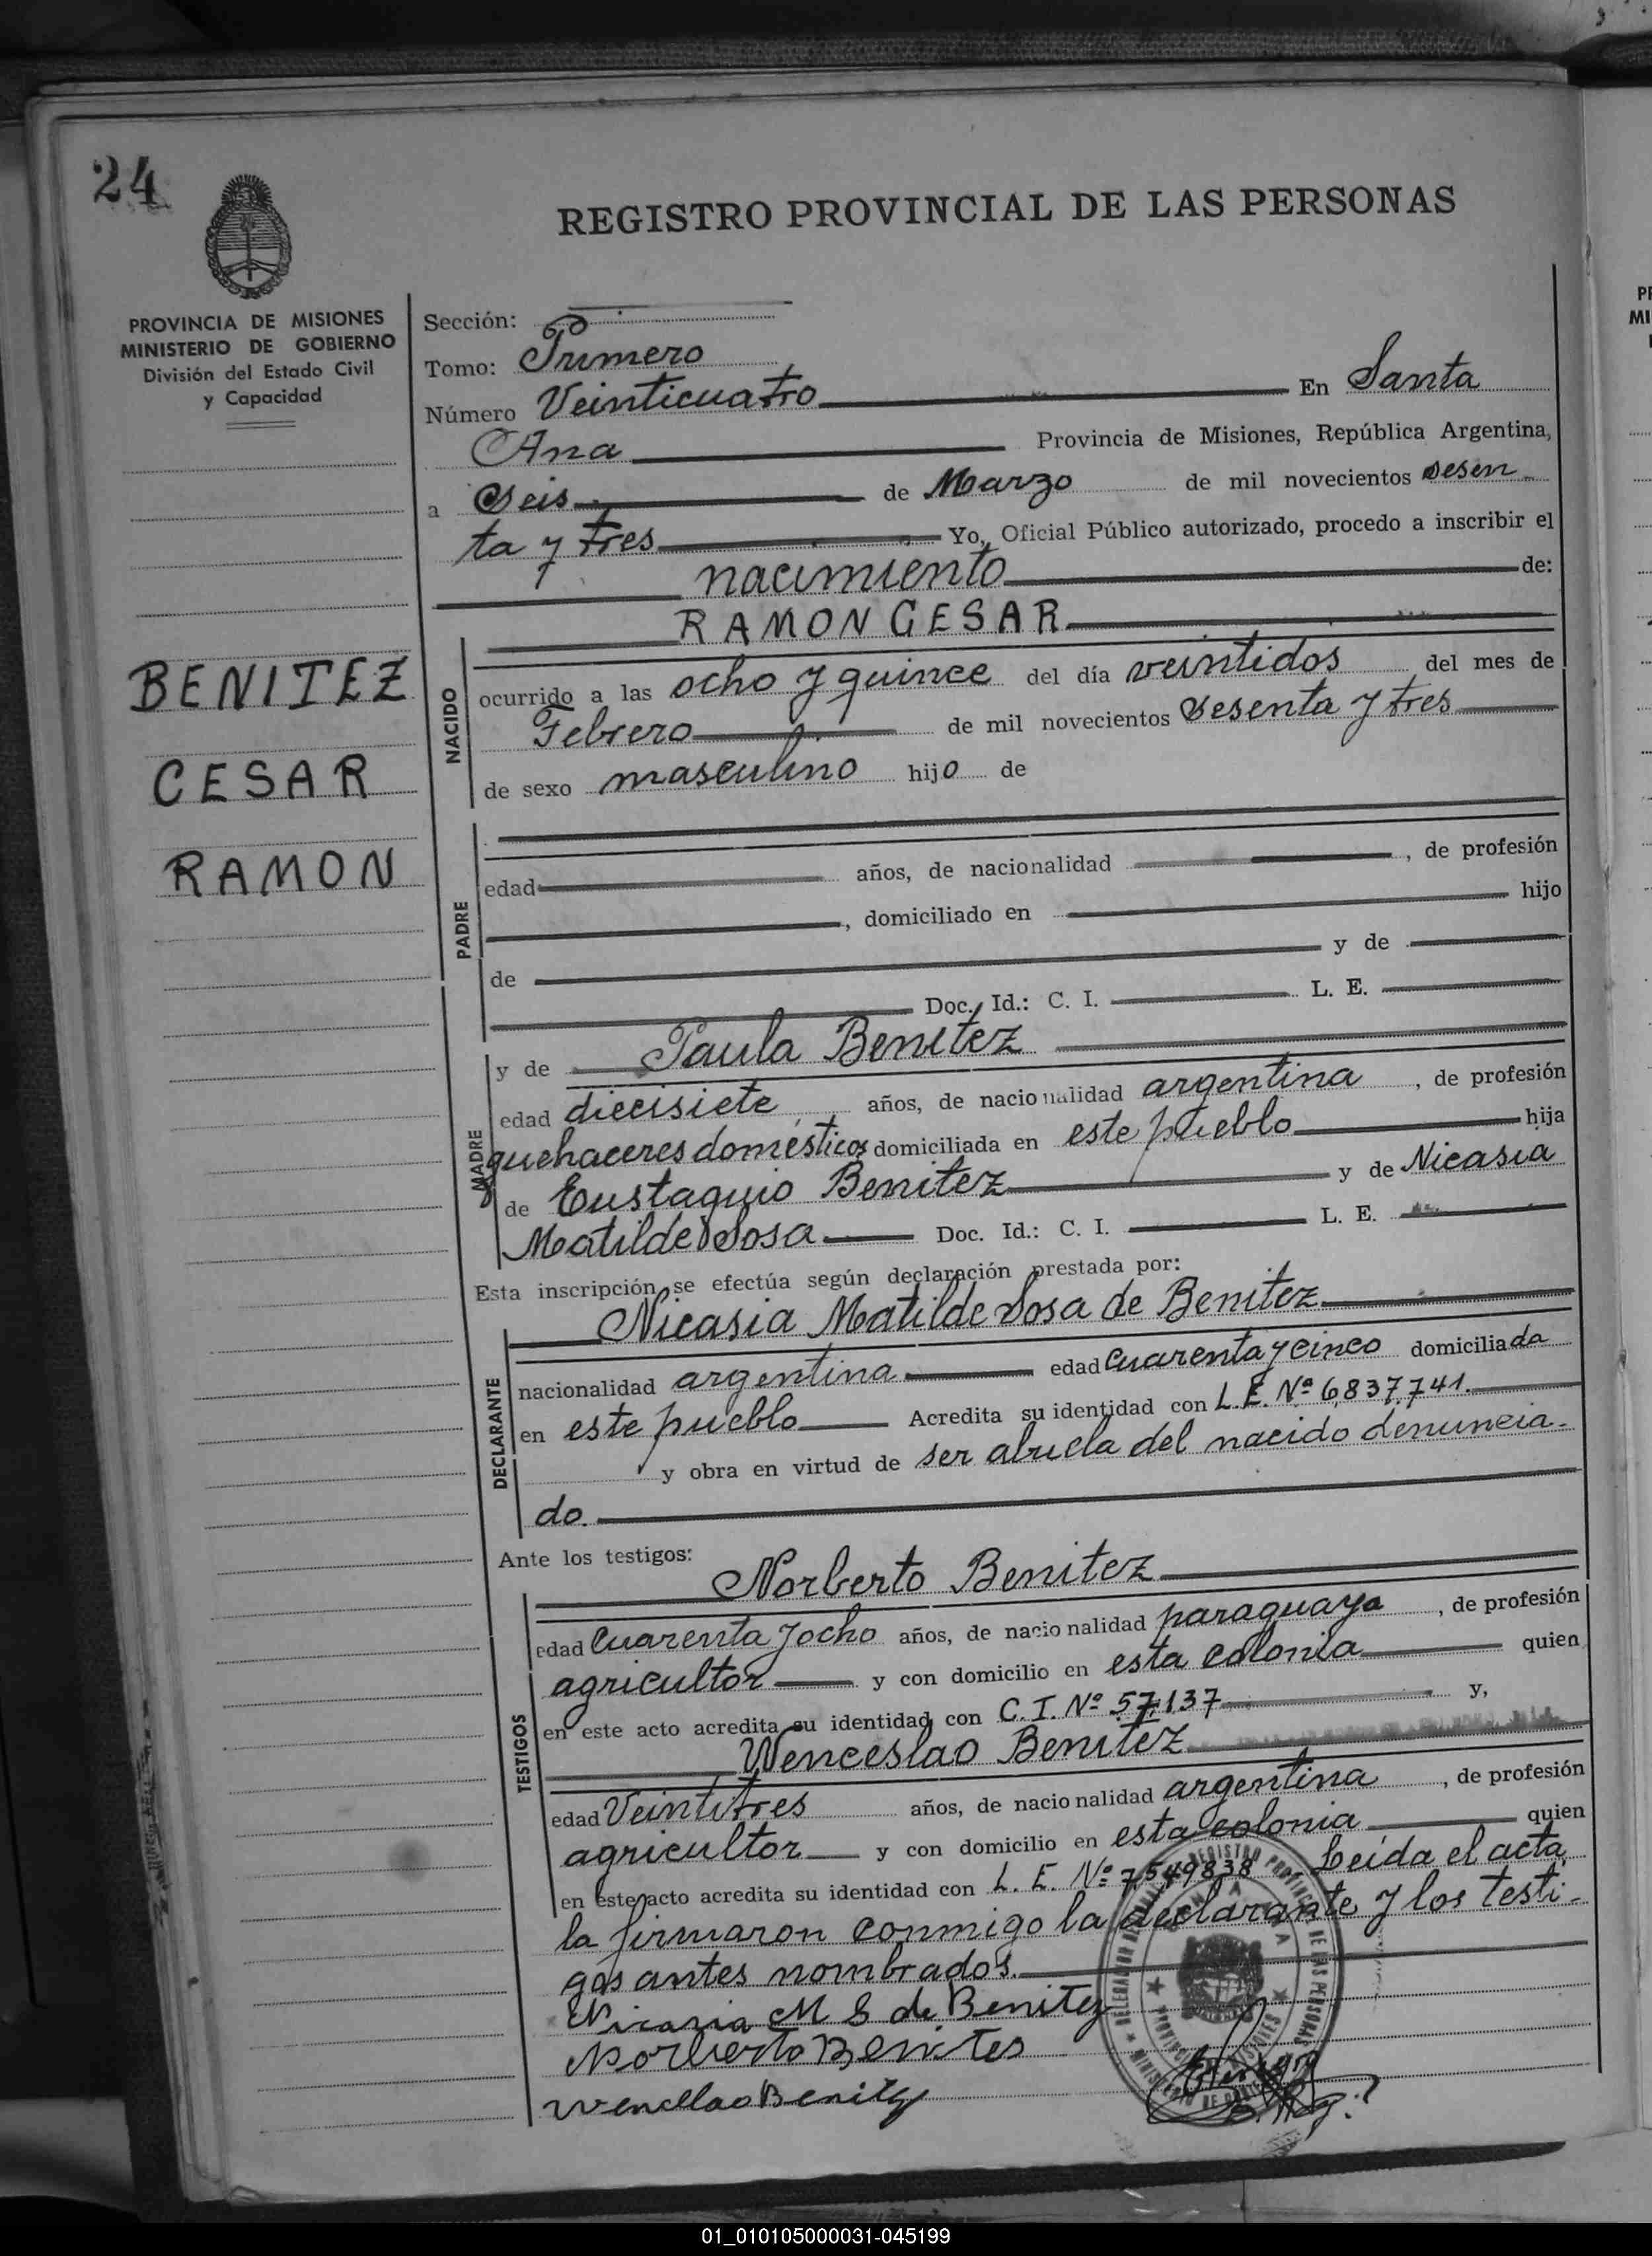 24
REGISTRO PROVINCIAL DE LAS PERSONAS
PROVINCIA DE MISIONES
MINISTERIO DE GOBIERNO
División del Estado Civil
y Capacidad
BENITEZ
CESAR
RAMON
Sección:
Tomo: Primero
Número Veinticuatro En Santa
Ana Provincia de Misiones, República Argentina,
a Seis de Marzo de mil novecientos sesen
ta y tres Yo, Oficial Público autorizado, procedo a inscribir el
nacimiento de:
RAMON CESAR
NACIDO
ocurrido a las ocho y quince del día veintidos del mes de
Febrero de mil novecientos sesenta y tres
de sexo masculino hijo de
PADRE
edad años, de nacionalidad , de profesión
, domiciliado en hijo
de y de
Doc. Id.: C. I. L. E.
MADRE
y de Paula Benitez
edad diecisiete años, de nacionalidad argentina , de profesión
quehaceres domésticos domiciliada en este pueblo hija
de Eustaquio Benitez y de Nicasia
Matilde Sosa Doc. Id.: C. I. L. E.
Esta inscripción se efectúa según declaración prestada por:
Nicasia Matilde Sosa de Benitez
DECLARANTE
nacionalidad argentina edad cuarenta y cinco domiciliada
en este pueblo Acredita su identidad con L. E. Nº 6,837.741.
y obra en virtud de ser abuela del nacido denuncia-
do.
Ante los testigos:
Norberto Benitez
TESTIGOS
edad Cuarenta y ocho años, de nacionalidad paraguaya , de profesión
agricultor y con domicilio en esta colonia quien
en este acto acredita su identidad con C. I. Nº 57.137 y,
Wenceslao Benitez
edad Veintitres años, de nacionalidad argentina , de profesión
agricultor y con domicilio en esta colonia quien
en este acto acredita su identidad con L. E. Nº 7.549838 Leída el acta
la firmaron conmigo la declarante y los testi-
gos antes nombrados.
Nicasia M S de Benitez
Norberto Benites
Wencllao Benitez
01_010105000031-045199